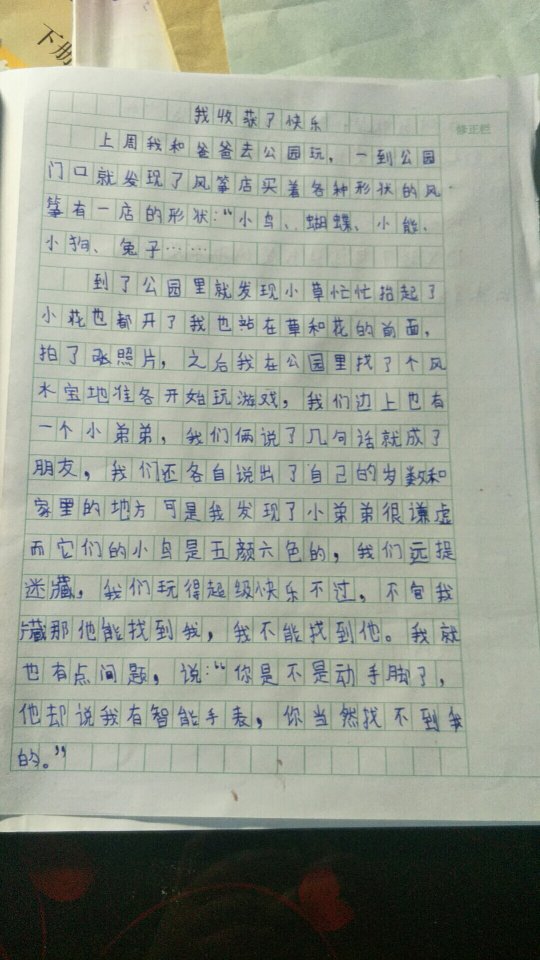 下册
我收获了快乐
修正栏
上周我和爸爸去公园玩，一到公园
门口就发现了风筝店买着各种形状的风
筝有一店的形状：“小鸟、蝴蝶、小能、
小狗、兔子……
到了公园里就发现小草忙忙抬起了
小花也都开了我也站在草和花的前面，
拍了张照片，之后我在公园里找了个风
水宝地准备开始玩游戏，我们边上也有
一个小弟弟，我们俩说了几句话就成了
朋友，我们还各自说出了自己的岁数和
家里的地方可是我发现了小弟弟很谦虚
而它们的小鸟是五颜六色的，我们远提
迷藏，我们玩得超级快乐不过，不管我
藏那他能找到我，我不能找到他。我就
也有点问题，说：“你是不是动手脚了，
他却说我有智能手表，你当然找不到我
的。”